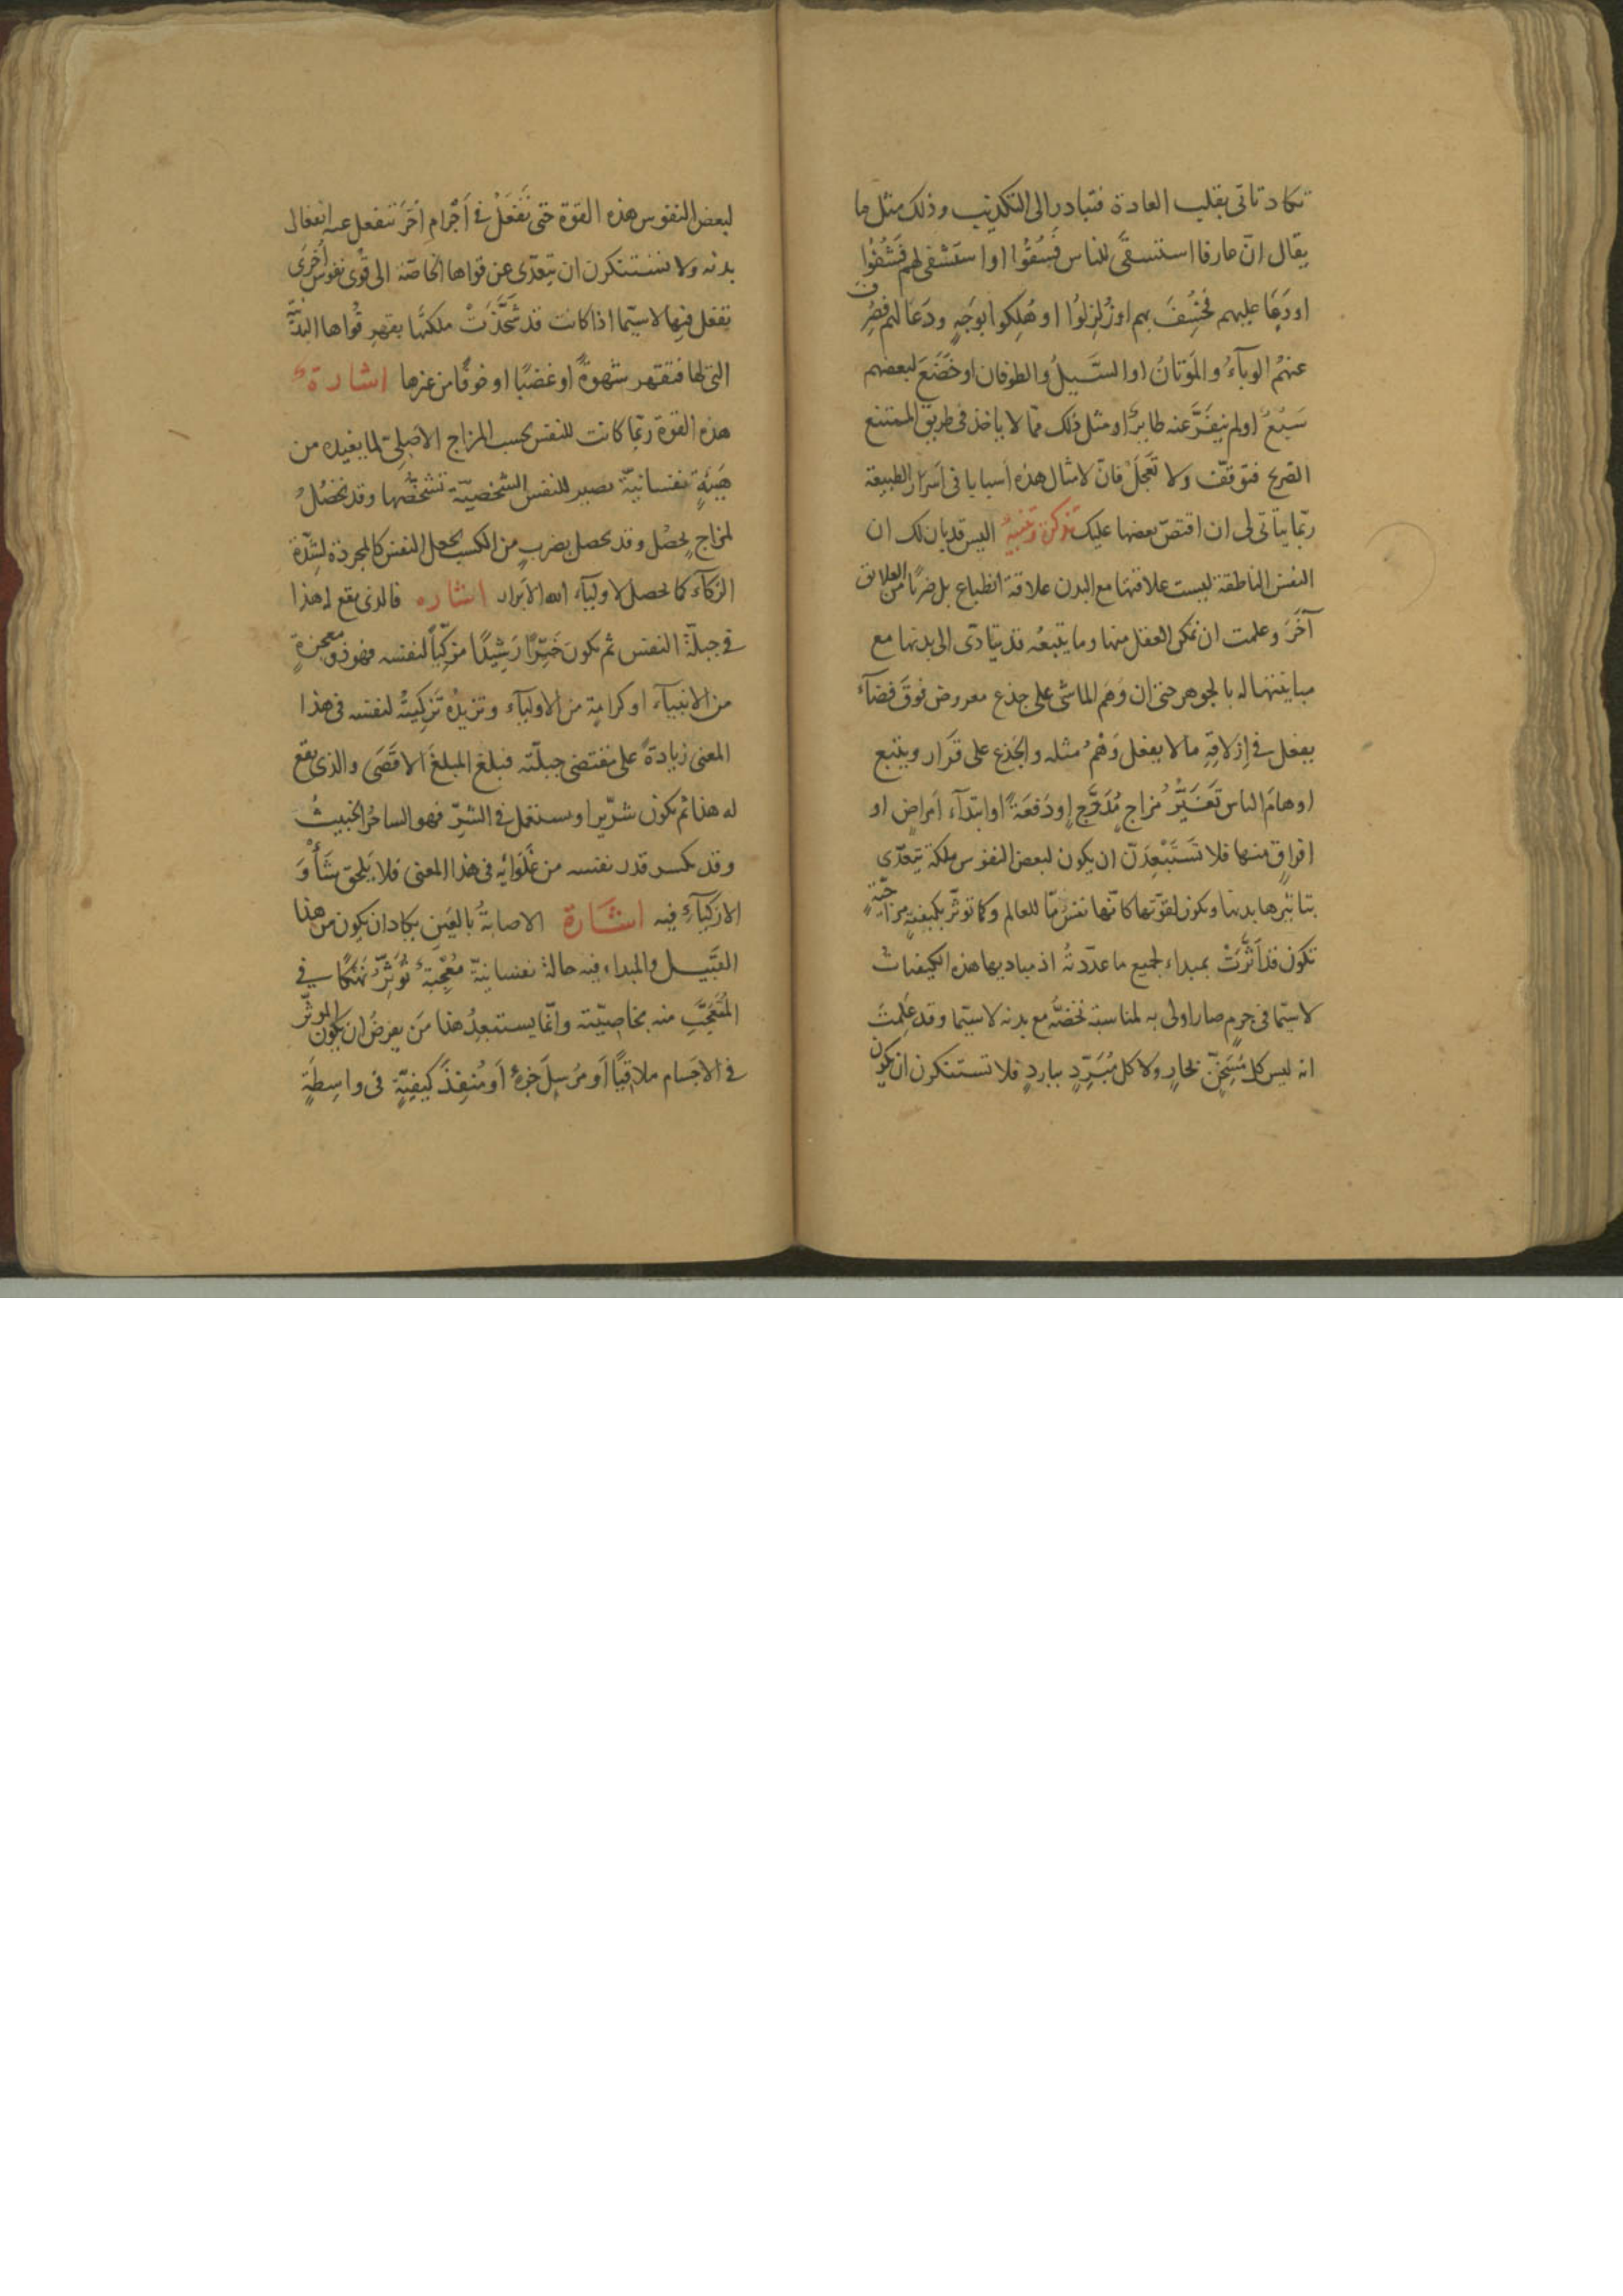 تكاد تاتى بقلب العادة فتبادر الى التكذيب وذلك مثل ما
يقال انّ عارفا استسقى للناس فَسُقُوْا او استَشْفى لهم فَشُفُوْا
او دَعَا عليهم فخُسِفَ بهم او زُلزِلوُا او هُلِكوا بوَجهٍ ودَعَا لهم فصُرِف
عنهُم الوبآءُ والمَوَتانُ او السَّيلُ والطوفان او خَضَعَ لبعضهم
سَبُعٌ او لم يَنفِرَّ عنه طايرٌ او مثل ذلك ممّا لا ياخذ فى طريق الممتنع
الصّريح فتوقّف ولا تَعجَلْ فانّ لامثال هذه اسبابا فى اَسرار الطبيعة
ربّما يتاتى لى ان اقتصّ بعضها عليك تذكرة وتنبيهٌ اليس قد بان لك ان
النفس الناطقة ليست علاقتها مع البدن علاقة انطباع بل ضربًا من العلايق
آخَرَ وعلمت ان تمكن العقل منها وما يتبعُه قد يتادّى الى بدنها مع
مباينتها له بالجوهر حتى ان وَهمَ الماشى على جذع معروض فوقَ فضآء
يفعل فى اِزلاقِهِ ما لا يفعل وَهْمُ مثله والجذع على قَرَار ويتبع
اوهامَ الناس تَغَيُّرُ مُزاج مُدَرَّجٍ او دَفعَةً او ابتدآء اَمراضٍ او
افراقٍ منها فلا تَستَبْعِدَنّ ان يكون لبعض النفوس ملكة يتعدّى
بتاثيرها بدنها ويكون لقوّتها كانّها نفس مّا للعالم وكما توثّر بكيفيةٍ مزاجيّةٍ
تكون قد اَثَّرَتْ بمبداء لجميع ما عدّدتهُ اذ مباديها هذه الكيفيات
لاسيّما فى جِرمٍ صار اولى به لمناسبة تخصّه مع بدنه لاسيّما وقد عَلِمتَ
انه ليس كل مُسَخِّنٍ بحارٍ ولا كل مُبَرِّدٍ بباردٍ فلا تستنكرن ان يكون
لبعض النفوس هذه القوة حتى تَفعَلْ فى اَجْرامٍ اُخَرَ تنفعل عنه انفعال
بدنه ولا تستنكرن ان تتعدّى عن قواها الخاصّة الى قُوى نفوس اُخرَى
تفعل فيها لاسيّما اذا كانت قد شَحَذَتْ ملكتها بقهرِ قُواها البدنيّة
التى لها فتقهر شهوةً او غضبًا او خوفًا من غيرها اشارةٌ
هذه القوة ربّما كانت للنفس بحسب المزاج الاصلىّ لما يفيده من
هَيئَةٍ نفسانيّة تصير للنفس الشخصيّة تشخّصُها وقد تحصُلُ
لمزاجٍ يحصُل وقد يحصل بضربٍ من الكسب يجعل النفس كالمجردة لِشدّة
الزكآء كما تحصل لاوليآء الله الابرار اشاره فالذى يقع له هذا
فى جبلّة النفس ثم يكون خيّرًا رَشِيدًا مزكّياً لنفسه فهو ذو معجزةٍ
من الانبيآء او كرامةٍ من الاوليآء وتزيدُه تَزكِيَتُه لنفسه فى هذا
المعنى زيادةً على مقتضى جبلّته فبلغ المبلغَ الاقصَى والذى يقع
له هذا ثم يكون شرّيرا ويستعمله فى الشرّ فهو الساحرُ الخبيثُ
وقد يكسر قدر نفسه من غُلَوَائِه فى هذا المعنى فلا يَلحَق شَأْوَ
الازكيآءِ فيه اشَارة الاصابةُ بالعَينِ يكاد ان يكون من هذا
القَبيل والمبداء فيه حالة نفسانيّة مُعْجِبَةٌ تُؤثّرُ نَهْكًا فى
المُتَعَجَّبِ منه بخاصِيّته وانّما يستبعِدُ هذا مَن يفرضُ ان يكون الموثّر
فى الاجسام ملاقيًا اَو مُرسِلَ جزءٍ اَو مُنفِذَ كَيفيّةٍ فى واسِطَةٍ